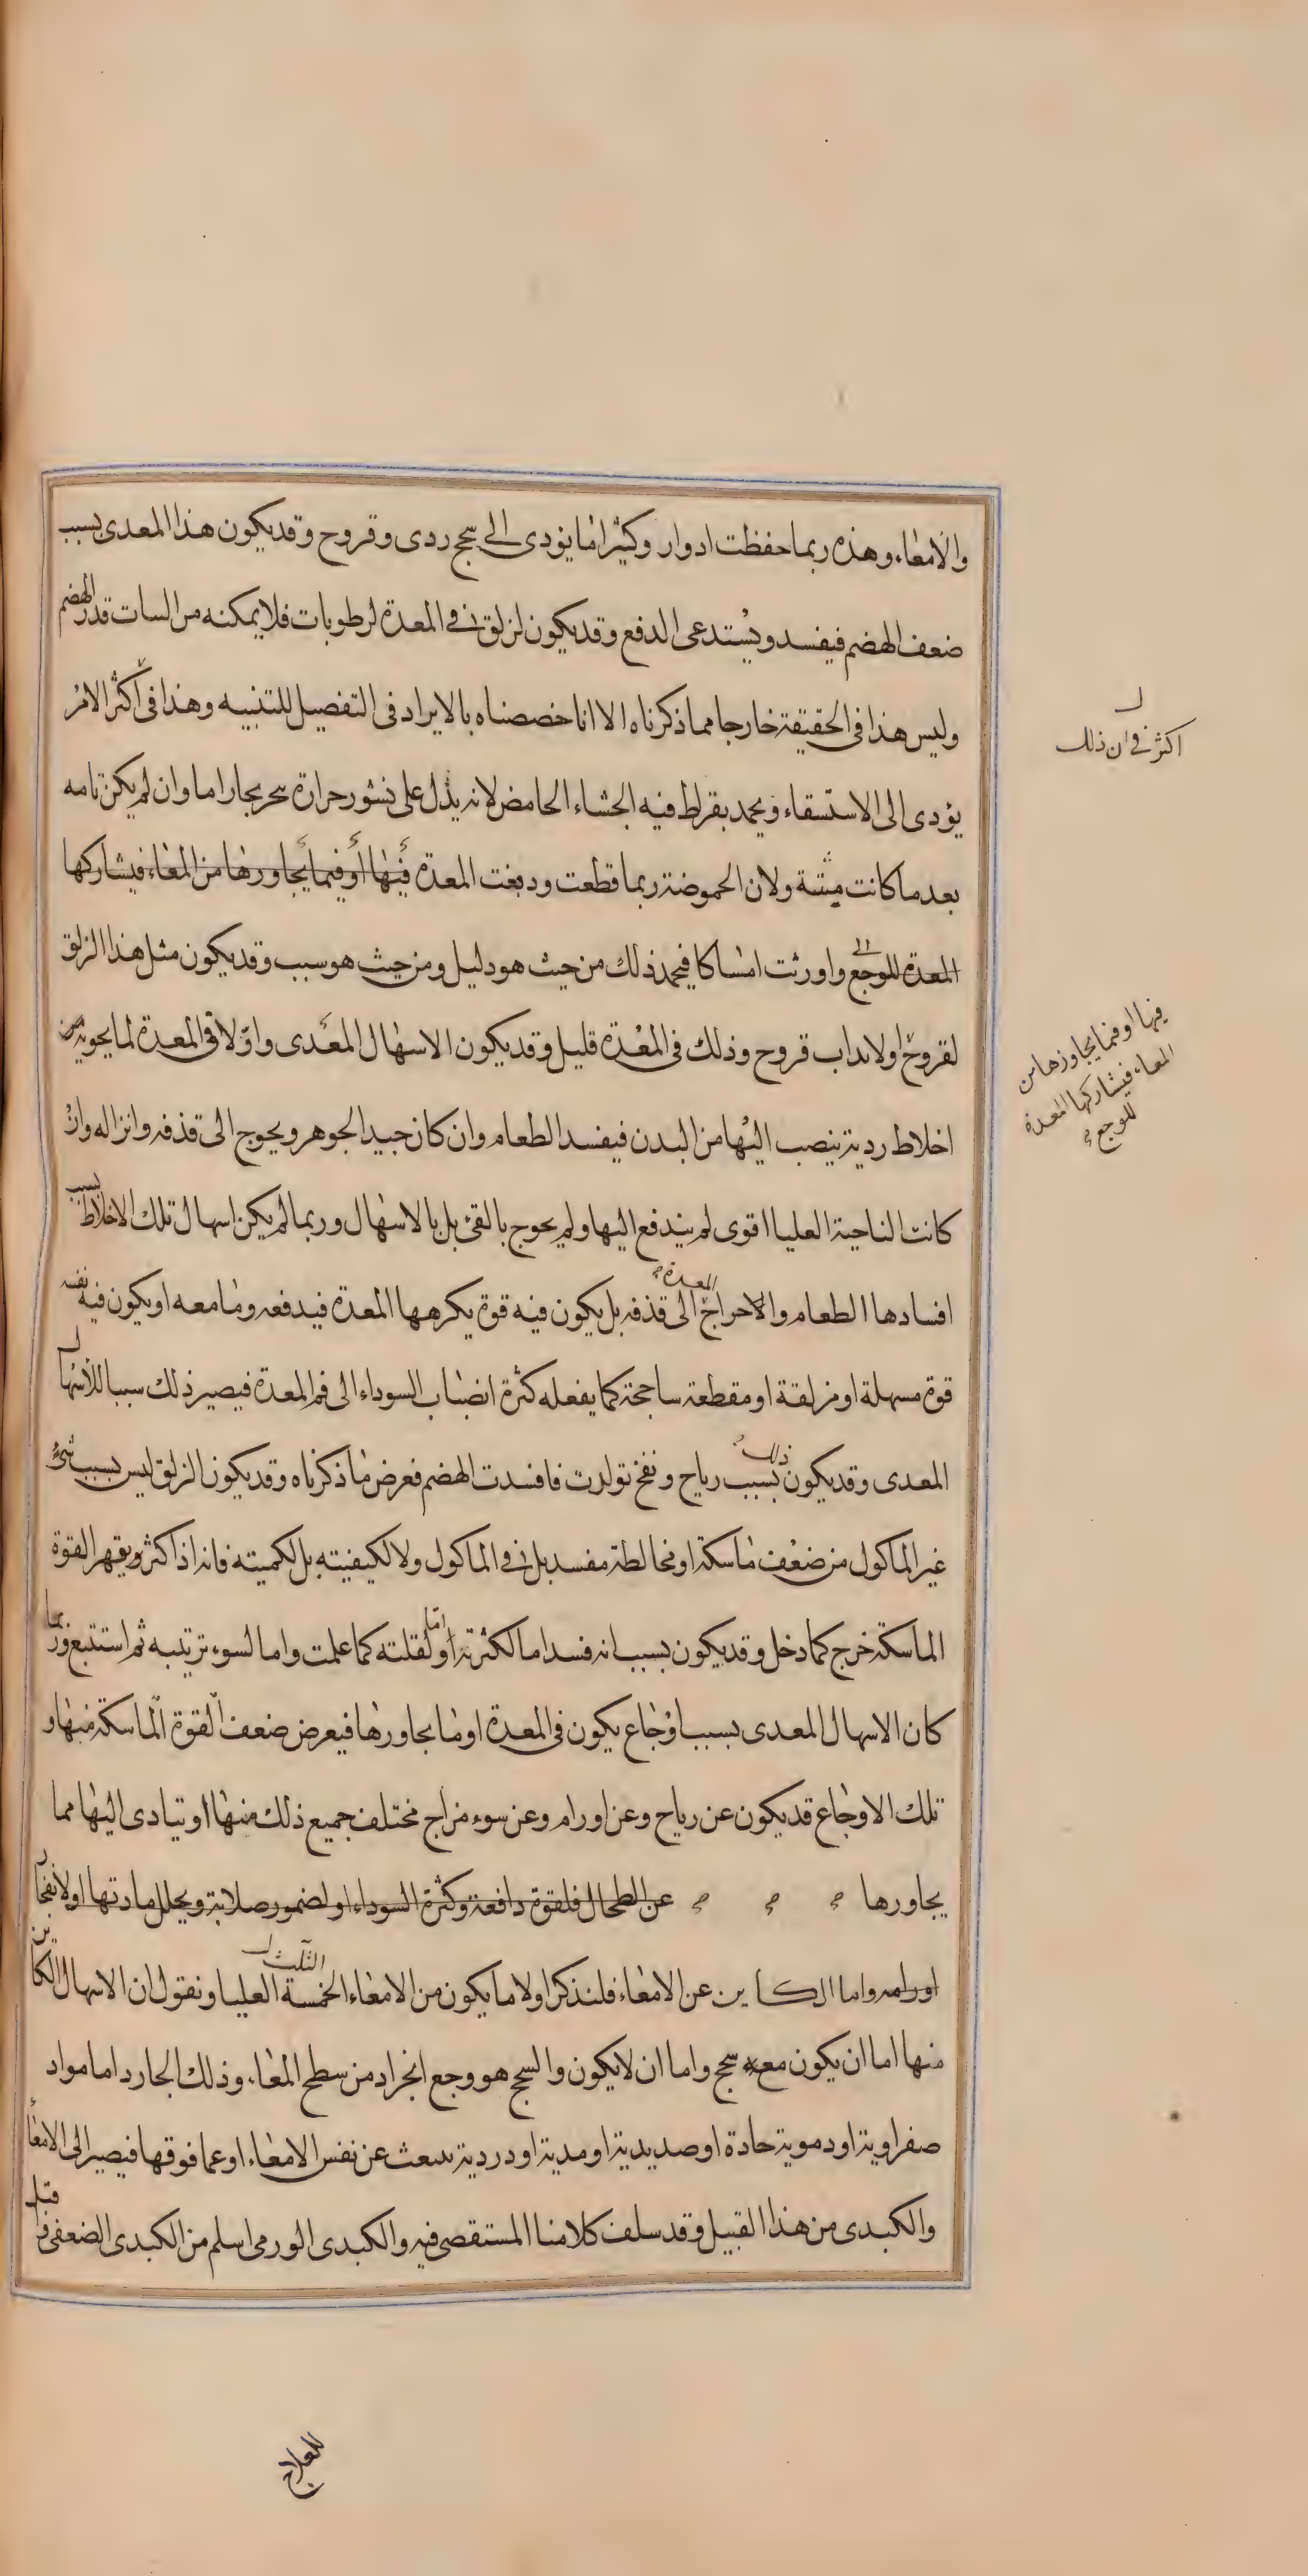 والامعاء وهذه ربما حفظت ادوار وكثيرا ما يؤدى الى سحج ردى وقروح وقد يكون هذا المعدى بسبب
ضعف الهضم فيفسد ويستدعى الدفع وقد يكون لزلق فى المعدة لرطوبات فلا يمكنه من السات قدر الهضم
وليس هذا فى الحقيقة خارجا مما ذكرناه الا انا خصصناه بالايراد فى التفصيل للتنبيه وهذا فى اكثر الامر
يؤدى الى الاستسقاء ويحمد بقراط فيه الجشاء الحامض لانه يدل على نشور حرارة بحر بحارا ما وان لم يكن تامه
بعد ما كانت ميتة ولان الحموضة ربما قطعت ودبغت المعدة فيها او فيما يجاورها من المعاء فيشاركها
المعدة للوجع الى واورثت امساكا فيحمد ذلك من حيث هو دليل ومن حيث هو سبب وقد يكون مثل هذا الزلق
لقروح او لانداب قروح وذلك فى المعدة قليل وقد يكون الاسهال المعدى واولا فى المعدة لما يحويه من
اخلاط ردية ينصب اليها من البدن فيفسد الطعام وان كان جيد الجوهر ويحوج الى قذفه وانزاله وان
كانت الناحية العليا اقوى لم يندفع اليها ولم يحوج بالقئ بل بالاسهال وربما لم يكن اسهال تلك الاخلاط بسبب
افسادها الطعام والاحراج المعدة الى قذفه بل يكون فيه قوة يكرهها المعدة فيدفعه وما معه او يكون فيه نفسه
قوة مسهلة او مزلقة او مقطعة ساحجة كما يفعله كثرة انصباب السوداء الى فم المعدة فيصير ذلك سببا للاسهال
المعدى وقد يكون ذلك بسبب رياح ونفخ تولدت فافسدت الهضم فعرض ما ذكرناه وقد يكون الزلق ليس بسبب شئ
غير الماكول من ضعف ماسكة او مخالطة مفسد بل فى الماكول ولا لكيفيته بل لكميته فانه اذا كثر ويقهر القوة
الماسكة خرج كما دخل وقد يكون بسبب انه فسد اما لكثرته او اما لقلته كما علمت واما لسوء ترتيبه ثم استتبع وربما
كان الاسهال المعدى بسبب اوجاع يكون فى المعدة او ما يجاورها فيعرض ضعف القوة الماسكة منها و
تلك الاوجاع قد يكون عن رياح وعن اورام وعن سوء مزاج مختلف جميع ذلك منها او يتادى اليها مما
يجاورها عن الطحال فلقوة دافعة وكثرة السوداء او لضمور صلابة ويحلل مادتها او لانفجار
اورامه واما الكاين عن الامعاء فلنذكر اولا ما يكون من الامعاء الخمسة الثلث العليا ونقول ان الاسهال الكاين
منها اما ان يكون معه سحج واما ان لا يكون والسحج هو وجع انجراد من سطح المعاء وذلك الجارد اما مواد
صفراوية او دموية حادة او صديدية او مدية او دردية سبعث عن نفس الامعاء او عما فوقها فيصير الى الامعاء
والكبدى من هذا القبيل وقد سلف كلامنا المستقصى فيه والكبدى الورمى اسلم من الكبدى الضعفى
ل
اكثر فى ان ذلك
فيها او فيما يجاورها من
المعاء فيشاركها المعدة
للوجع
للعلاج